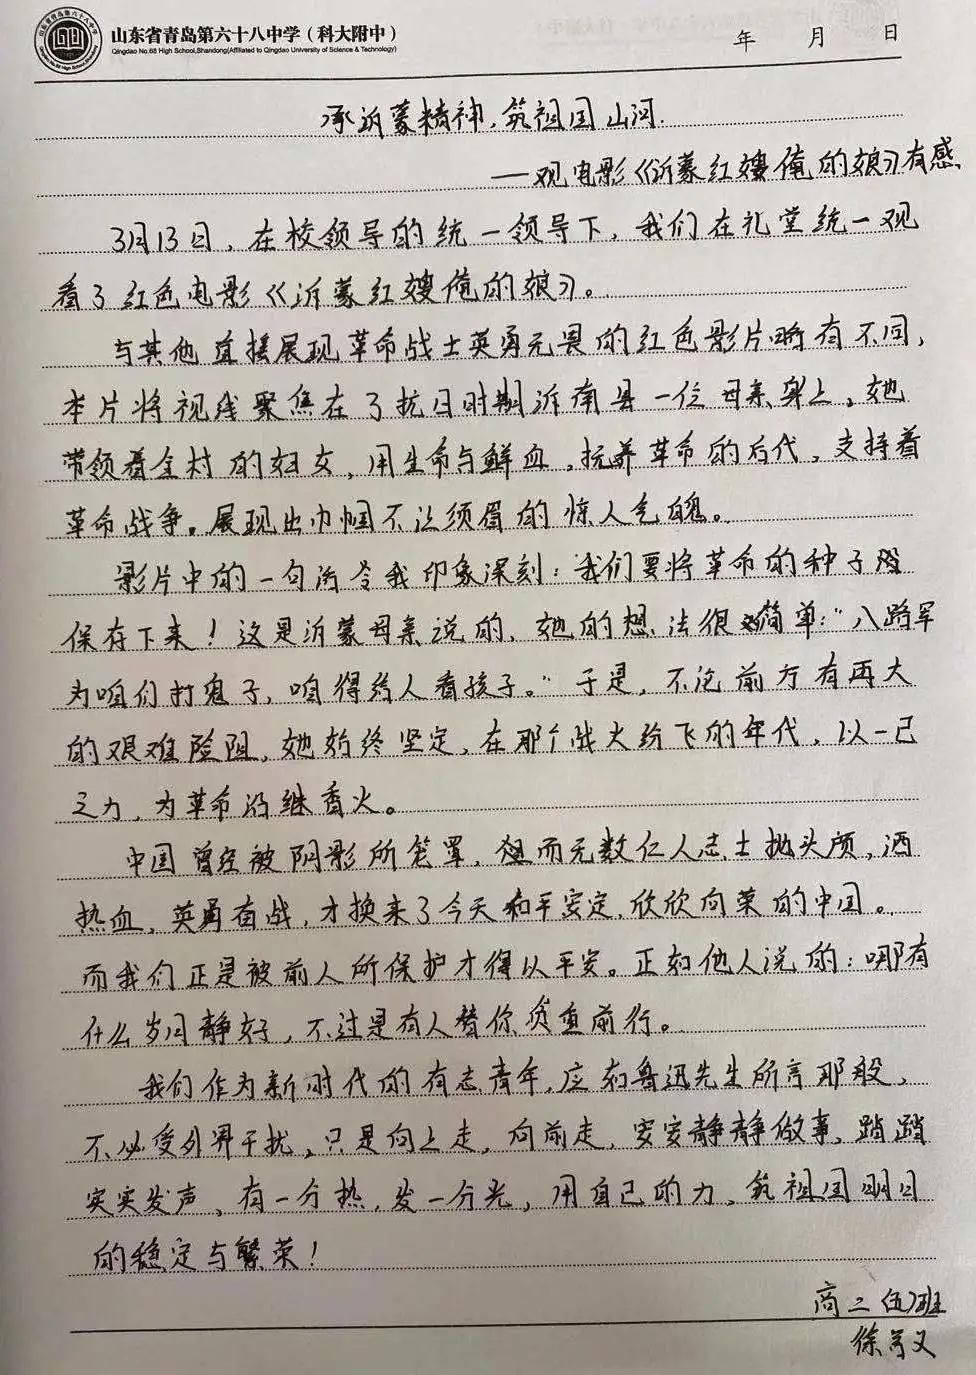 山东省青岛第六十八中学（科大附中）
Qingdao No.68 High School,Shandong(Affiliated to Qingdao University of Science & Technology)
年 月 日
承沂蒙精神,筑祖国山河.
——观电影《沂蒙红嫂俺的娘》有感
3月13日，在校领导的统一领导下，我们在礼堂统一观
看了红色电影《沂蒙红嫂俺的娘》。
与其他直接展现革命战士英勇无畏的红色影片略有不同，
本片将视线聚焦在了抗日时期沂南县一位母亲身上，她
带领着全村的妇女，用生命与鲜血，抚养革命的后代，支持着
革命战争。展现出巾帼不让须眉的惊人气魄。
影片中的一句话令我印象深刻：我们要将革命的种子
保存下来！这是沂蒙母亲说的，她的想法很简单：“八路军
为咱们打鬼子，咱得给人看孩子。”于是，不论前方有再大
的艰难险阻，她始终坚定，在那个战火纷飞的年代，以一己
之力，为革命的继香火。
中国曾经被阴影所笼罩，但而无数仁人志士抛头颅，洒
热血，英勇奋战，才换来了今天和平安定，欣欣向荣的中国。
而我们正是被前人所保护才得以平安。正如他人说的：哪有
什么岁月静好，不过是有人替你负重前行。
我们作为新时代的有志青年，应如鲁迅先生所言那般，
不必受外界干扰，只是向上走，向前走，安安静静做事，踏踏
实实发声，有一分热，发一分光，用自己的力，筑祖国明日
的稳定与繁荣！
高二（五）班
徐